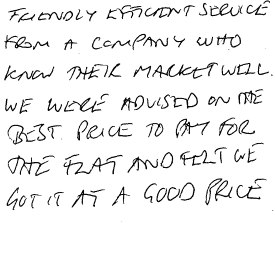 FRIENDLY EFFICIENT SERVICE
FROM A COMPANY WHO
KNOW THEIR MARKET WELL.
WE WERE ADVISED ON THE
BEST PRICE TO PAY FOR
THE FLAT AND FELT WE
GOT IT AT A GOOD PRICE